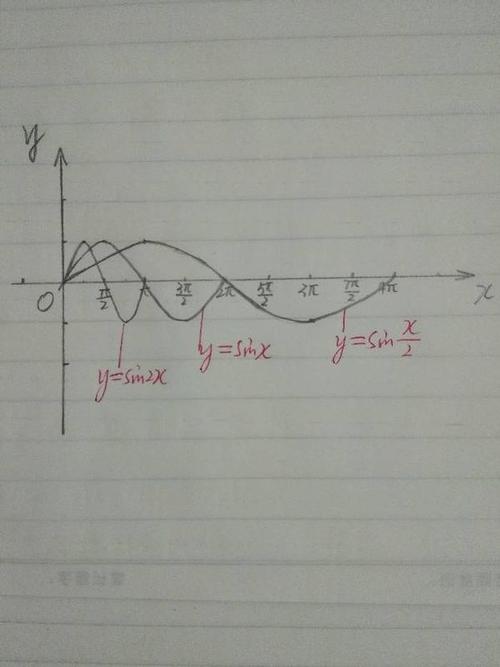 y
O π/2 π 3π/2 2π 5π/2 3π 7π/2 4π x
y=sin2x y=sinx y=sin x/2